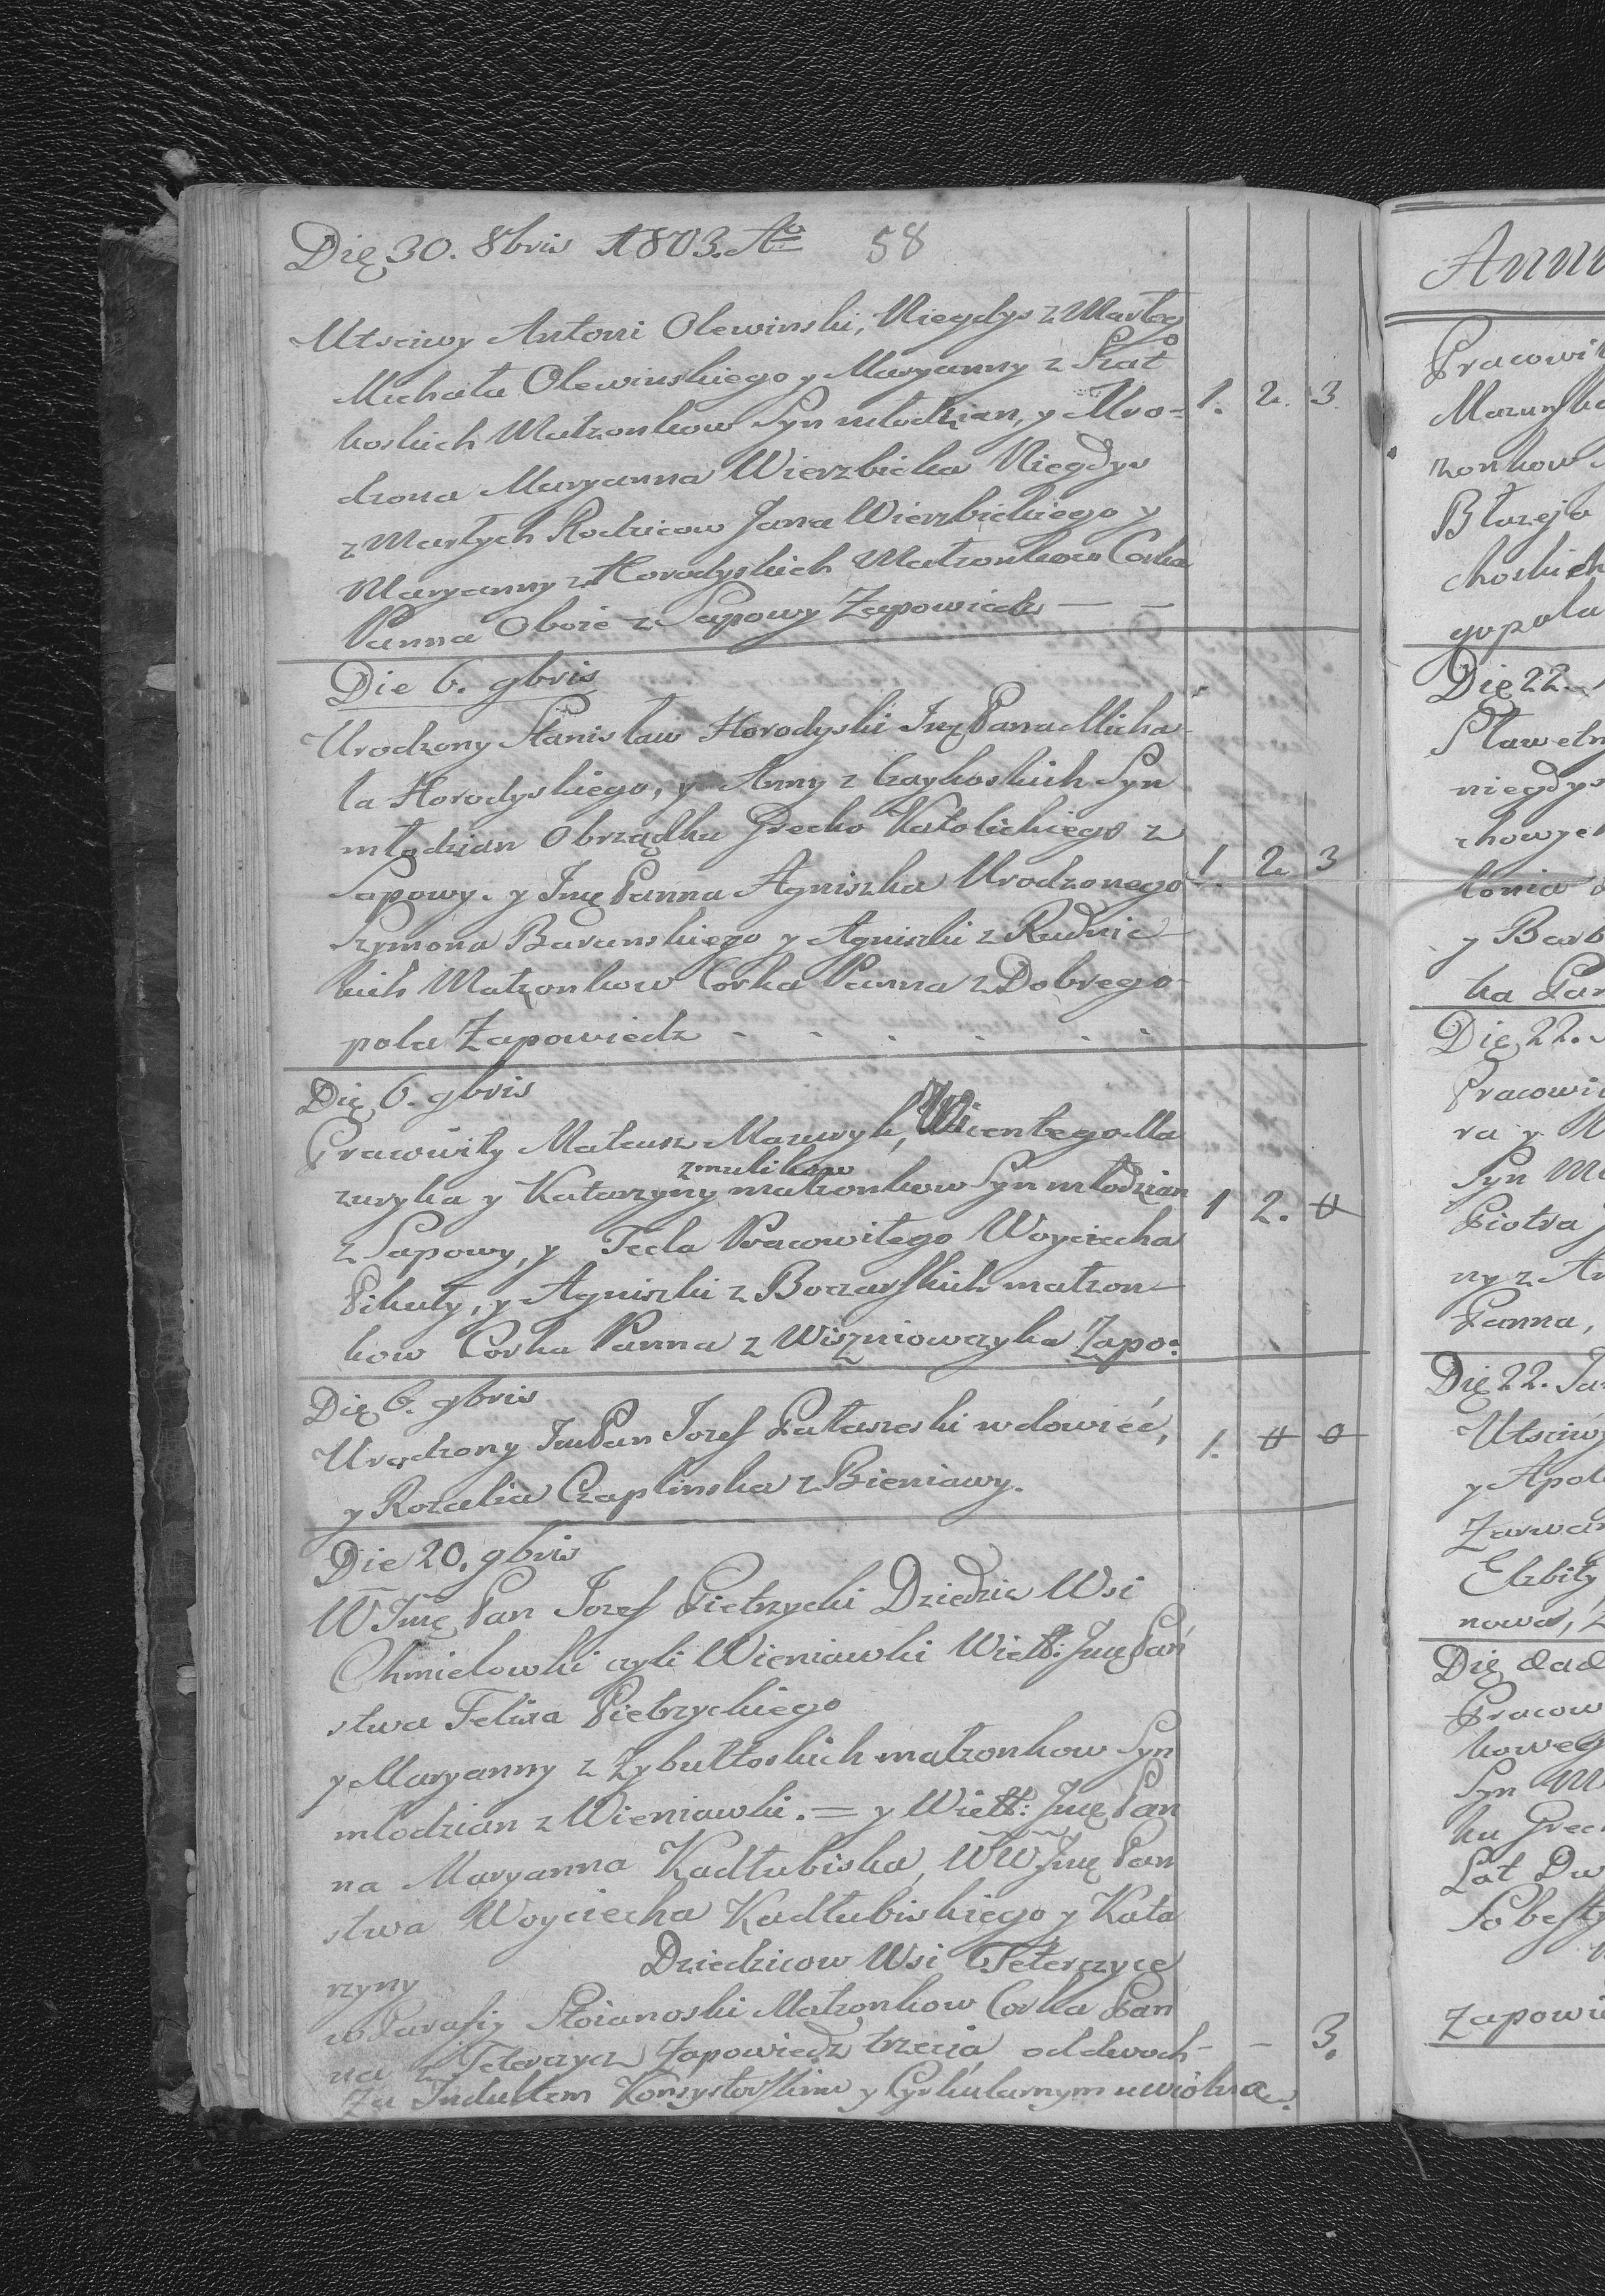 Dię 30. 8bris 1803. Ao 58
Utsciwy Antoni Olewinski, Niegdys z Marłeg
o
Michała Olewinskiego y Maryanny z Szat
koskich Matzonkow Syn młodzian, y Uro= 1. 2. 3
dzona Maryanna Wierzbicka Niegdys
z Marłych Rodzicow Jana Wierzbickiego y
Maryanny z Horodyskich Matzonkow Corka
Panna Oboie z Sapowy Zapowiedz — —
Die 6. 9bris
Urodzony Stanisław Horodyski Jmę Pana Micha
ła Horodyskiego, y Anny z Czaykoskich Syn
młodzian Obrządku Grecko Katolickiego z
Sapowy. y Jmę Panna Agniszka Urodzonego 1. 2. 3
Szymona Baranskiego y Agniszki z Rudnic
kich Matzonkow Corka Panna z Dobrego-
pola Zapowiedz - - - - - -
Dię 6. 9bris
Pracowity Mateusz Mazuryk, Wicentego Ma
zmulikow
zuryka y Katarzyny matzonkow Syn młodzian 1 2. 0
z Sapowy, y Tecla Pracowitego Woyciecha
Pikuły, y Agniszki z Boczarskich matzon
kow Corka Panna z Wiszniowczyka Zapo:
Dię 6. 9bris
Urodzony Jmę Pan Jozef Pałaszeski wdowieć, 1. 0 0
y Rozalia Czaplinska z Bieniawy.
Die 20. 9bris
W Jmę Pan Jozef Pietrzycki Dziedzic Wsi
Chmielowki czyli Wieniawki Wiell: Jmę Pań
stwa Felixa Pietrzyckiego
y Maryanny z Zybułtoskich matzonkow Syn
młodzian z Wieniawki. = y Wiell: Jmę Pan
na Maryanna Kadłubiska, WW Jmę Pan
stwa Woyciecha Kadłubiskiego y Kata
rzyny Dziedzicow Wsi Teterczyce
w Parafiy Stoianoski Matzonkow Corka Pan
na z Teterczyc Zapowiedz trzecia od dwoch - - 3.
Za Indultem Konsystorskim y Cyrkularnym uwiolna.
Annu
Pracowit
Mazuryka
zonkow
Błazeja
choskich
gopola
Dię 22.
Sławetn
niegdys
chowych
tonia
y Barb
ka Pan
Dię 22.
Pracowi
ra y
Syn Mł
Piotra
ny z An
Panna,
Dię 22. Ja
Utsciwy
y Apol
Zarwan
Elzbity
nowa,
Dię dad
Pracow
koweg
Syn Mł
ku Grec
Lat Dw
Sobesty
Zapowi